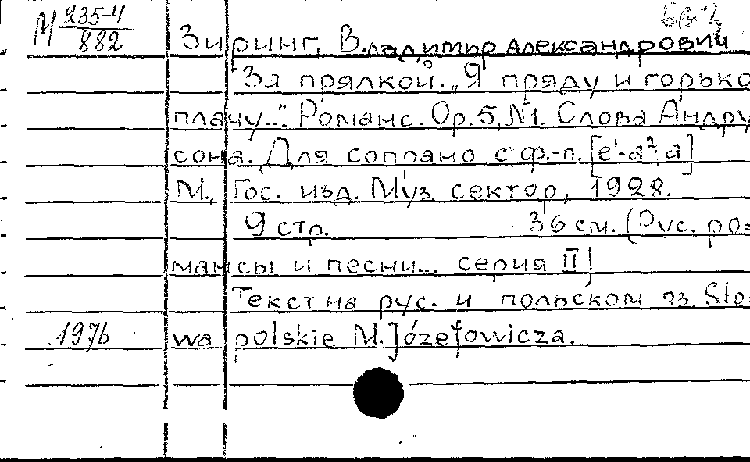 М 235-4
882
Зиринг, Владимир Александрович
"За прялкой. „Я пряду и горько
плачу...". Романс. Op.5, №1. Слова Андру
сона. Для сопрано с ф-п. [e'-a², a]
М., Гос. изд. Муз. сектор, 1928.
9 стр. 36 см. (Рус. ро=
мансы и песни... серия II)
Текст на рус. и польском яз. Sło=
wa polskie M. Józefowicza.
1976